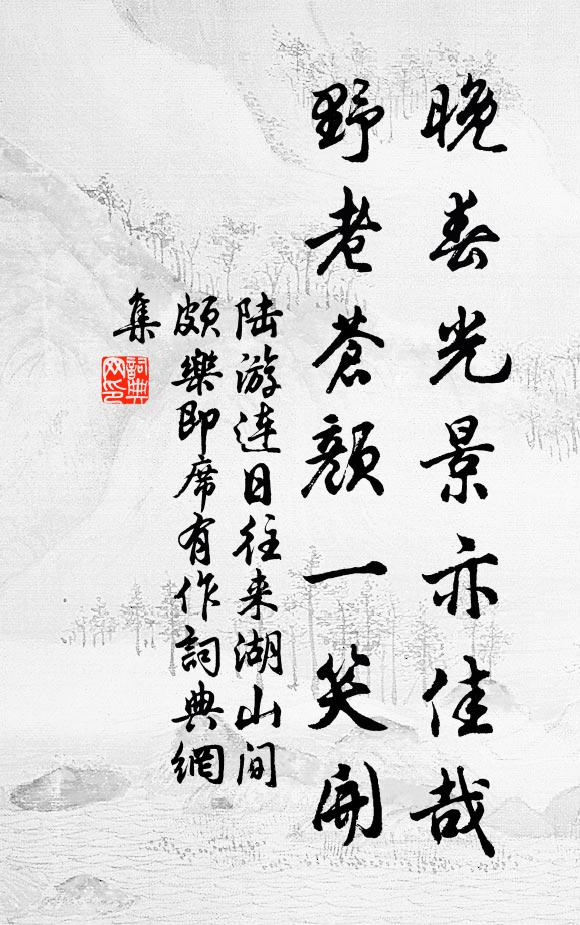 晚春光景亦佳哉
野老苍颜一笑開
陆游连日往来湖山间
頗樂即席有作詞典網
集
詞典
网印